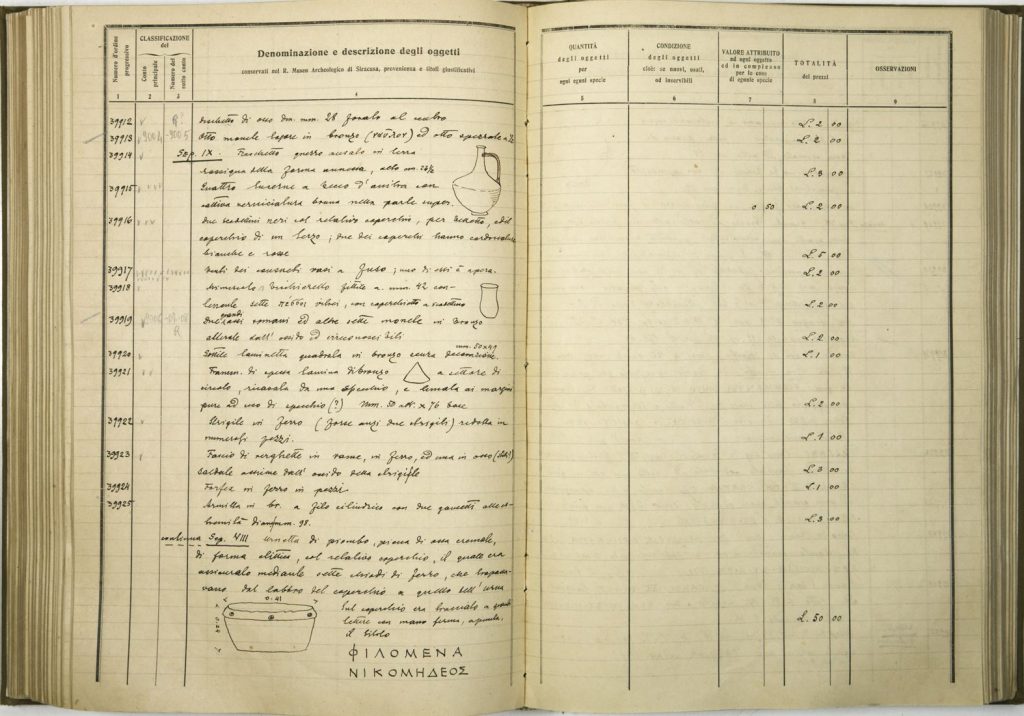 CLASSIFICAZIONE
del
Numero d'ordine
progressivo
Conto
principale
Numero del
sotto conto
Denominazione e descrizione degli oggetti
conservati nel R. Museo Archeologico di Siracusa, provenienza e titoli giustificativi
1 2 3 4
QUANTITÀ
degli oggetti
per
ogni egual specie
CONDIZIONE
degli oggetti
cioè: se nuovi, usati,
od inservibili
VALORE ATTRIBUITO
ad ogni oggetto
ed in complesso
per le cose
di eguale specie
TOTALITÀ
dei prezzi
OSSERVAZIONI
5 6 7 8 9
39912 di osso diam. mm. 28 forato al centro L. 2 00
39913 Otto monete in bronzo ed otto spezzate L. 2 00
39914 Sep. IX. Fiaschetto in terra
rossigna della forma annessa, alto mm. L. 3 00
39915 Quattro lucerne a becco d'
cattiva verniciatura bruna nella parte super. 0 50 L. 2 00
39916 Due neri col relativo coperchio, per , ed il
coperchio di un terzo; due dei coperchi hanno
bianche e rosse L. 5 00
39917 Venti dei consueti vasi a fuso; uno di essi è L. 2 00
39918 Minuscolo bicchieretto fittile a mm. 42 con-
tenente sette vitrei, con L. 2 00
39919 Due grandi assi romani ed altre sette monete in bronzo
alterate dall'ossido ed irriconoscibili L. 2 00
39920 Sottile laminetta quadrata in bronzo senza decorazione. mm. 50x49 L. 1 00
39921 Framm. di spessa lamina di bronzo a settore di
circolo, ricavata da uno specchio, e limata ai margini
pure ad uso di specchio (?) mm. 50 alt. x 76 base L. 2 00
39922 Strigile in ferro (forse anzi due strigili) ridotta in
numerosi pezzi. L. 1 00
39923 Fascio di verghette in rame, in ferro, ed una in osso
saldate assieme dall'ossido della strigile L. 3 00
39924 Forfex in ferro in pezzi L. 1 00
39925 Armilla in br. a filo cilindrico con due alle e-
stremità diam. mm. 98. L. 3 00
continua Sep. VIII Urnetta di piombo, piena di ossa cremate,
di forma elittica, col relativo coperchio, il quale era
assicurato mediante sette chiodi di ferro, che trapassa-
vano dal labbro del coperchio a quello dell'urna
0.41
Sul coperchio era tracciato a grandi
lettere con mano ferma, a punta,
il titolo L. 50 00
ΦΙΛΟΜΕΝΑ
ΝΙΚΟΜΗΔΕΟΣ